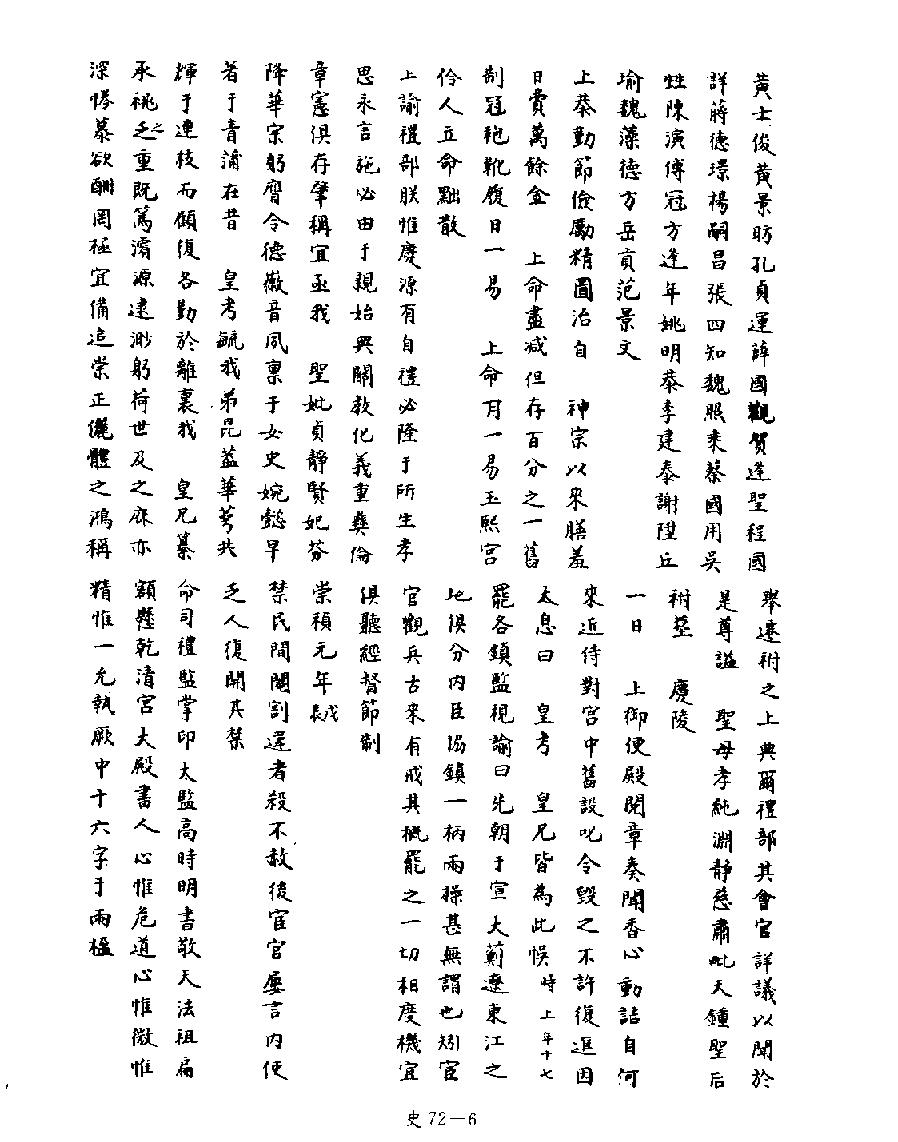 黄士俊黄景昉孔貞運薛國觀賀逢聖程國
詳蔣德璟楊嗣昌張四知魏照乘蔡國用吳
甡陳演傅冠方逢年姚明恭李建泰謝陞丘
瑜魏藻德方岳貢范景文
上恭勤節儉勵精圖治自　神宗以來膳羞
日費萬餘金　上命盡減但存百分之一舊
制冠袍靴履日一易　上命月一易玉熙宮
伶人立命黜散
上諭禮部朕惟慶源有自禮必隆于所生孝
思永言施必由于親始興關教化義重彝倫
章憲俱存肇稱宜亟我　聖妣貞靜賢妃芬
降華宗躬膺令德徽音夙稟于女史婉懿早
著于青浦在昔　皇考毓我弟昆蓋華萼共
輝于連枝而顧復各勤於離裏我　皇兄纂
承祧之重既篤濬源遠渺躬荷世及之庥亦
深惓慕欲酬罔極宜備追崇正儷體之鴻稱
舉遷祔之上典爾禮部其會官詳議以聞於
是尊諡　聖母孝純淵靜慈肅毗天鍾聖后
祔葬　慶陵
一日　上御便殿閱章奏聞香心動詰自何
來近侍對宮中舊設叱令毀之不許復進因
太息曰　皇考　皇兄皆為此悞時上年十七
罷各鎮監視諭曰先朝于宣大薊遼東江之
地俱分內臣協鎮一柄兩操甚無謂也矧宦
官觀兵古來有戒其概罷之一切相度機宜
俱聽經督節制
崇禎元年戊辰
禁民間閹割違者殺不赦後宦官屢言內使
乏人復開其禁
命司禮監掌印太監高時明書敬天法祖扁
額懸乾清宮大殿書人心惟危道心惟微惟
精惟一允執厥中十六字于兩楹
史 72—6